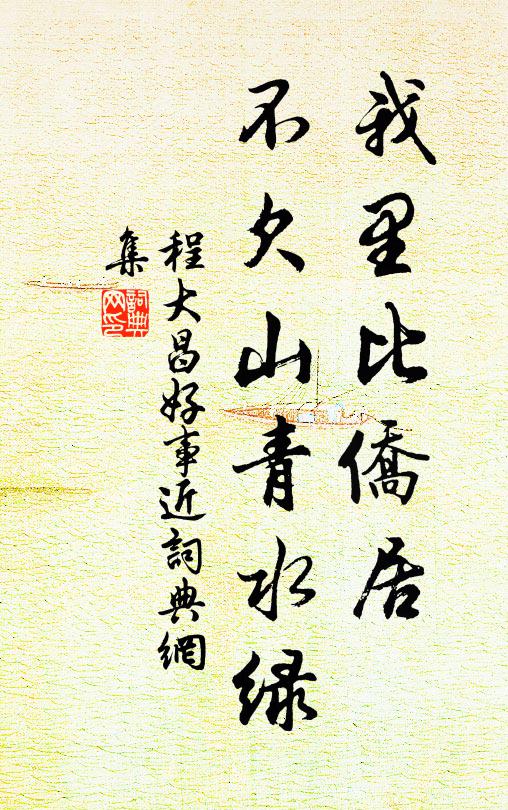 我里比僑居
不欠山青水緑
程大昌好事近詞典網
集
詞典網印